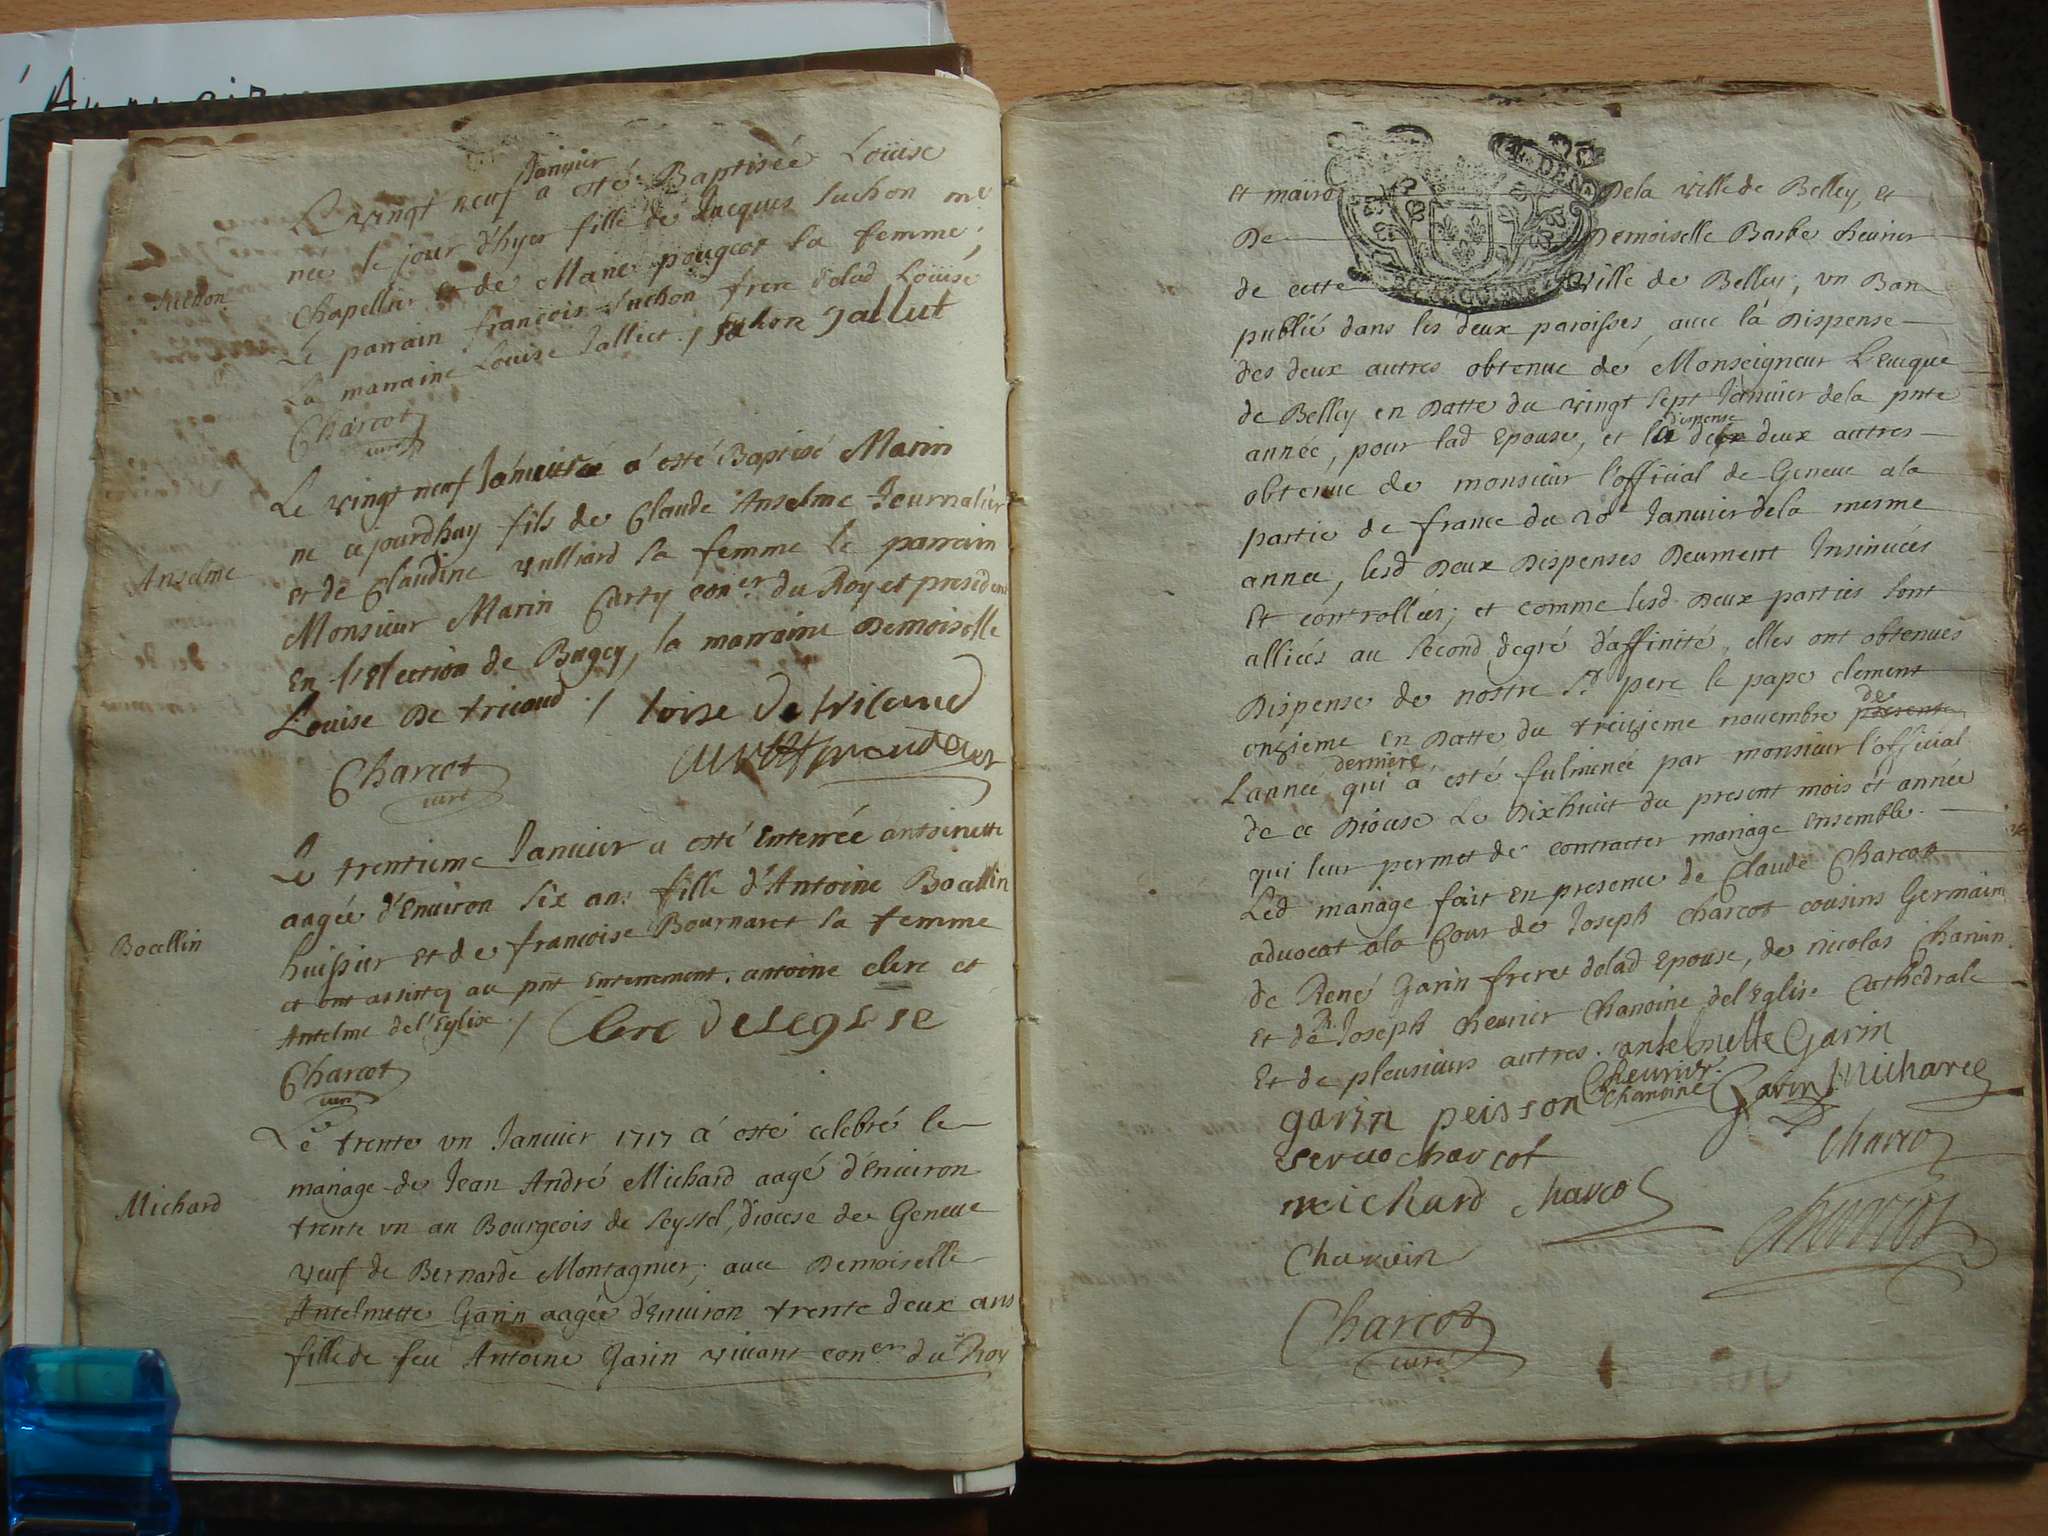 Le vingt neuf Januier a esté Baptisée Loüise
née le jour d'hyer fille de Jacques Suchon me
Suchon
Chapellier et de Marie pougeot sa femme,
Le parrain francois Suchon frere delad Loüise
La marraine Loüise Jallet ./ Suchon Jallut
Charcot
curé
Le vingt neuf Januier a esté Baptisé Marin
né ajourdhuy fils de Claude Anselme Journalier
Anselme
et de Claudine vulliard sa femme le parrain
Monsieur Marin Carry coner du Roy et president
En l'Election de Bugey, la marraine Demoiselle
Loüise De tricaud ./ loise de tricaud
Charcot
curé
Le trentieme Januier a esté Enterrée antoinette
aagée d'Enuiron six ans fille d'Antoine Bocllin
Bocllin
huissier et de francoise Bournaret sa femme
et ont assistez au pnt Enterrement, antoine clerc et
Antelme de l'Eglise ./ Clerc Deleglise
Charcot
curé
Le trente vn Januier 1717 a esté celebré le
mariage de Jean André Michard aagé d'Enuiron
Michard
trente vn an Bourgeois de Seyssel, diocese de Geneue
veuf de Bernarde Montagnier, auec Demoiselle
Antelmette Garin aagée d'Enuiron trente deux ans
fille de feu Antoine Garin viuant coner du Roy
et maire Dela ville de Belley, et
De Demoiselle Barbe cheurier
de cette ville de Belley, vn Ban
publié dans les deux paroisses auec la Dispense
des deux autres obtenue de Monseigneur L'Eueque
de Belley en Datte du vingt sept Januier dela pnte
année, pour lad Epouse, et la dispense des deux autres
obtenue de monsieur l'official de Geneue ala
partie de france du 20e Januier dela mesme
année, lesd Deux Dispenses Deument Insinuées
Et controllées; et comme lesd Deux parties sont
alliées au second degré d'affinité, elles ont obtenues
Dispense de nostre St pere le pape clement
onzieme en Datte du treizieme nouembre de
L'année derniere qui a esté fulminée par monsieur l'official
de ce Diocese Le Dixhuict du present mois et année
qui leur permet de contracter mariage Ensemble.
Led mariage fait en presence de Claude Charcot
aduocat ala Cour de Joseph charcot cousins Germains
de René Garin freres delad Epouse, de nicolas Charuin
Et de Rd Joseph cheurier chanoine del'Eglise Cathedrale
Et de pleusieurs autres. antelmette Garin
garin peisson Cheurier chanoine Garin Michard
charcot
charcot
michard charcot
Charuin
Charcot
curé